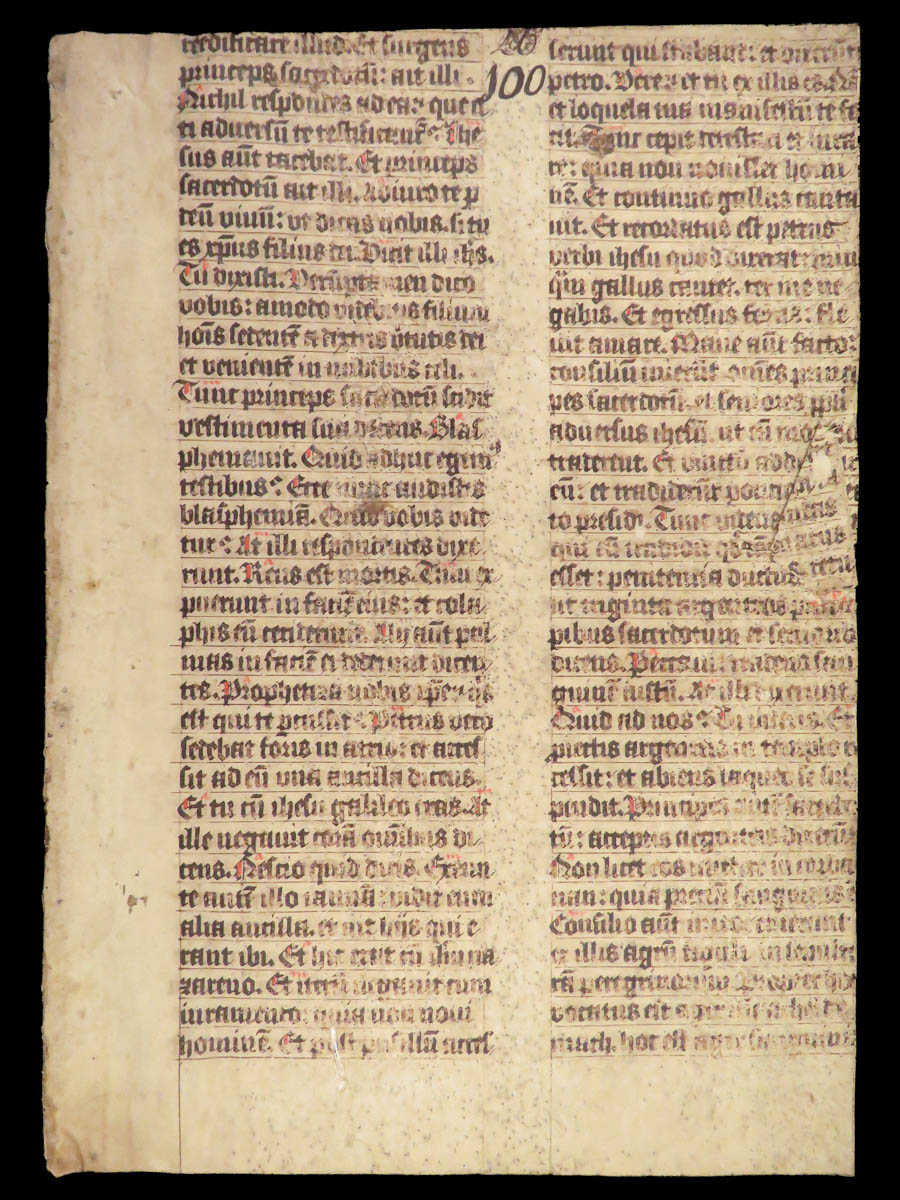 reedificare illud. Et surgens
princeps sacerdotū: ait illi.
Nichil respondes ad ea: que i
ti adversū te testificant᷑? Ihe
sus aūt tacebat. Et princeps
sacerdotū ait illi. Adiuro te p̄
deū vivū: ut dicas nobis. si tu
es xp̄us filius dei. Dicit illi ihs.
Tu dixisti. Verūptamen dico
vobis: amodo videbitis filium
hoīs sedentē a dextris v̄tutis dei
et venientē in nubibus celi.
Tunc princeps sacerdotū scidit
vestimenta sua dicens. Blas
phemavit. Quid adhuc egemus
testibus? Ecce nunc audistis
blasphemiā. Quid vobis vide
tur? At illi respondentes dixe
runt. Reus est mortis. Tunc ex
puerunt in faciē eius: et cola
phis eū ceciderunt. Alij aūt pal
mas in faciē ei dederunt dicen
tes. Prophetiza nobis xp̄e: q̇s
est qui te percussit? Petrus vero
sedebat foris in atrio: et acces
sit ad eū una ancilla dicens.
Et tu cū ihesu galileo eras. At
ille negavit corā omībus di
cens. Nescio quid dicis. Exeun
te autē illo ianuā: vidit eum
alia ancilla. et ait hijs qui e
rant ibi. Et hic erat cū ihū na
zareno. Et iterū negavit cum
iuramento: quia non novi
hominē. Et post pusillū acces
26
100
serunt qui stabant: et dixerūt
petro. Vere et tu ex illis es. Nā
et loquela tua manifestū te fa
cit. Tunc cepit detestari et iura
re: quia non novisset homi
nē. Et continuo gallus canta
uit. Et recordatus est petrus
verbi ihesu quod dixerat: priu
q̄ gallus cantet. ter me ne
gabis. Et egressus foras: fle
vit amare. Mane aūt facto:
consiliū inierūt omēs princi
pes sacerdotū. et seniores ppl̄i
adversus ihesū. ut eū
traderent. Et vinctū
eū: et tradiderūt
to presidi. Tunc videns
qui eū tradidit
esset: penitentia ductus
ut triginta argenteos princi
pibus sacerdotum et senioribus
dicens. Peccavi tradens san
guinē iustū. At illi dixerunt.
Quid ad nos? Tu videris. Et
proiectis argenteis in templo
cessit: et abiens laqueo se sus
pendit. Principes autē sacerdo
tū: acceptis argenteis dixerūt
Non licet eos mittere in corbo
nan: quia preciū sanguinis
Consilio aūt inito: emerunt
ex illis agrū figuli in sepultu
rā peregrinorum. Propter hoc
vocatus est ager ille achelde
mach. hoc est ager sanguinis